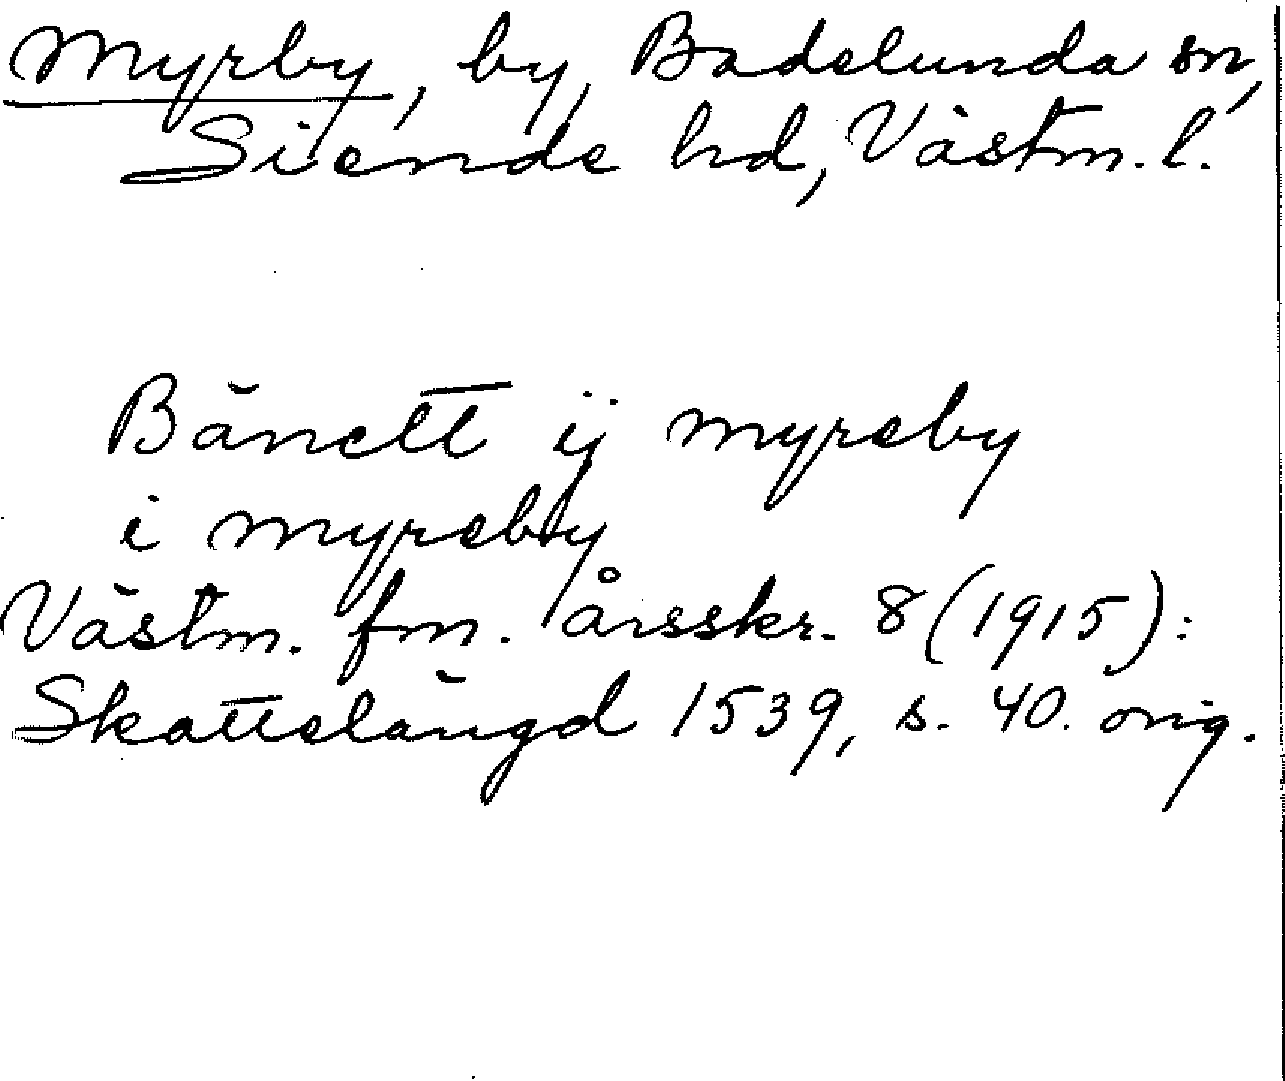 Myrby, by, Badelunda sn,
Siende hd, Västm. l.
Bänctt ij myreby
i myreby
Västm. fm. årsskr. 8 (1915):
Skattelängd 1539, s. 40. orig.